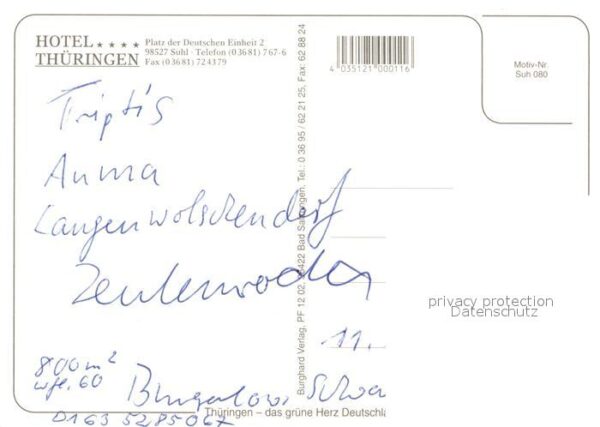 HOTEL ★★★★
THÜRINGEN
Platz der Deutschen Einheit 2
98527 Suhl · Telefon (03681) 767-6
Fax (03681) 724379
4 035121 000116
Motiv-Nr.
Suh 080
Triptis
Auma
Langenwolschendorf
Zeulenroda
11.
800 m²
Bungalow,
0163 5285067
Burghard Verlag, PF 12 02, 36422 Bad Salzungen, Tel.: 0 36 95 / 62 21 25, Fax: 62 88 24
privacy protection
Datenschutz
Thüringen – das grüne Herz Deutschla